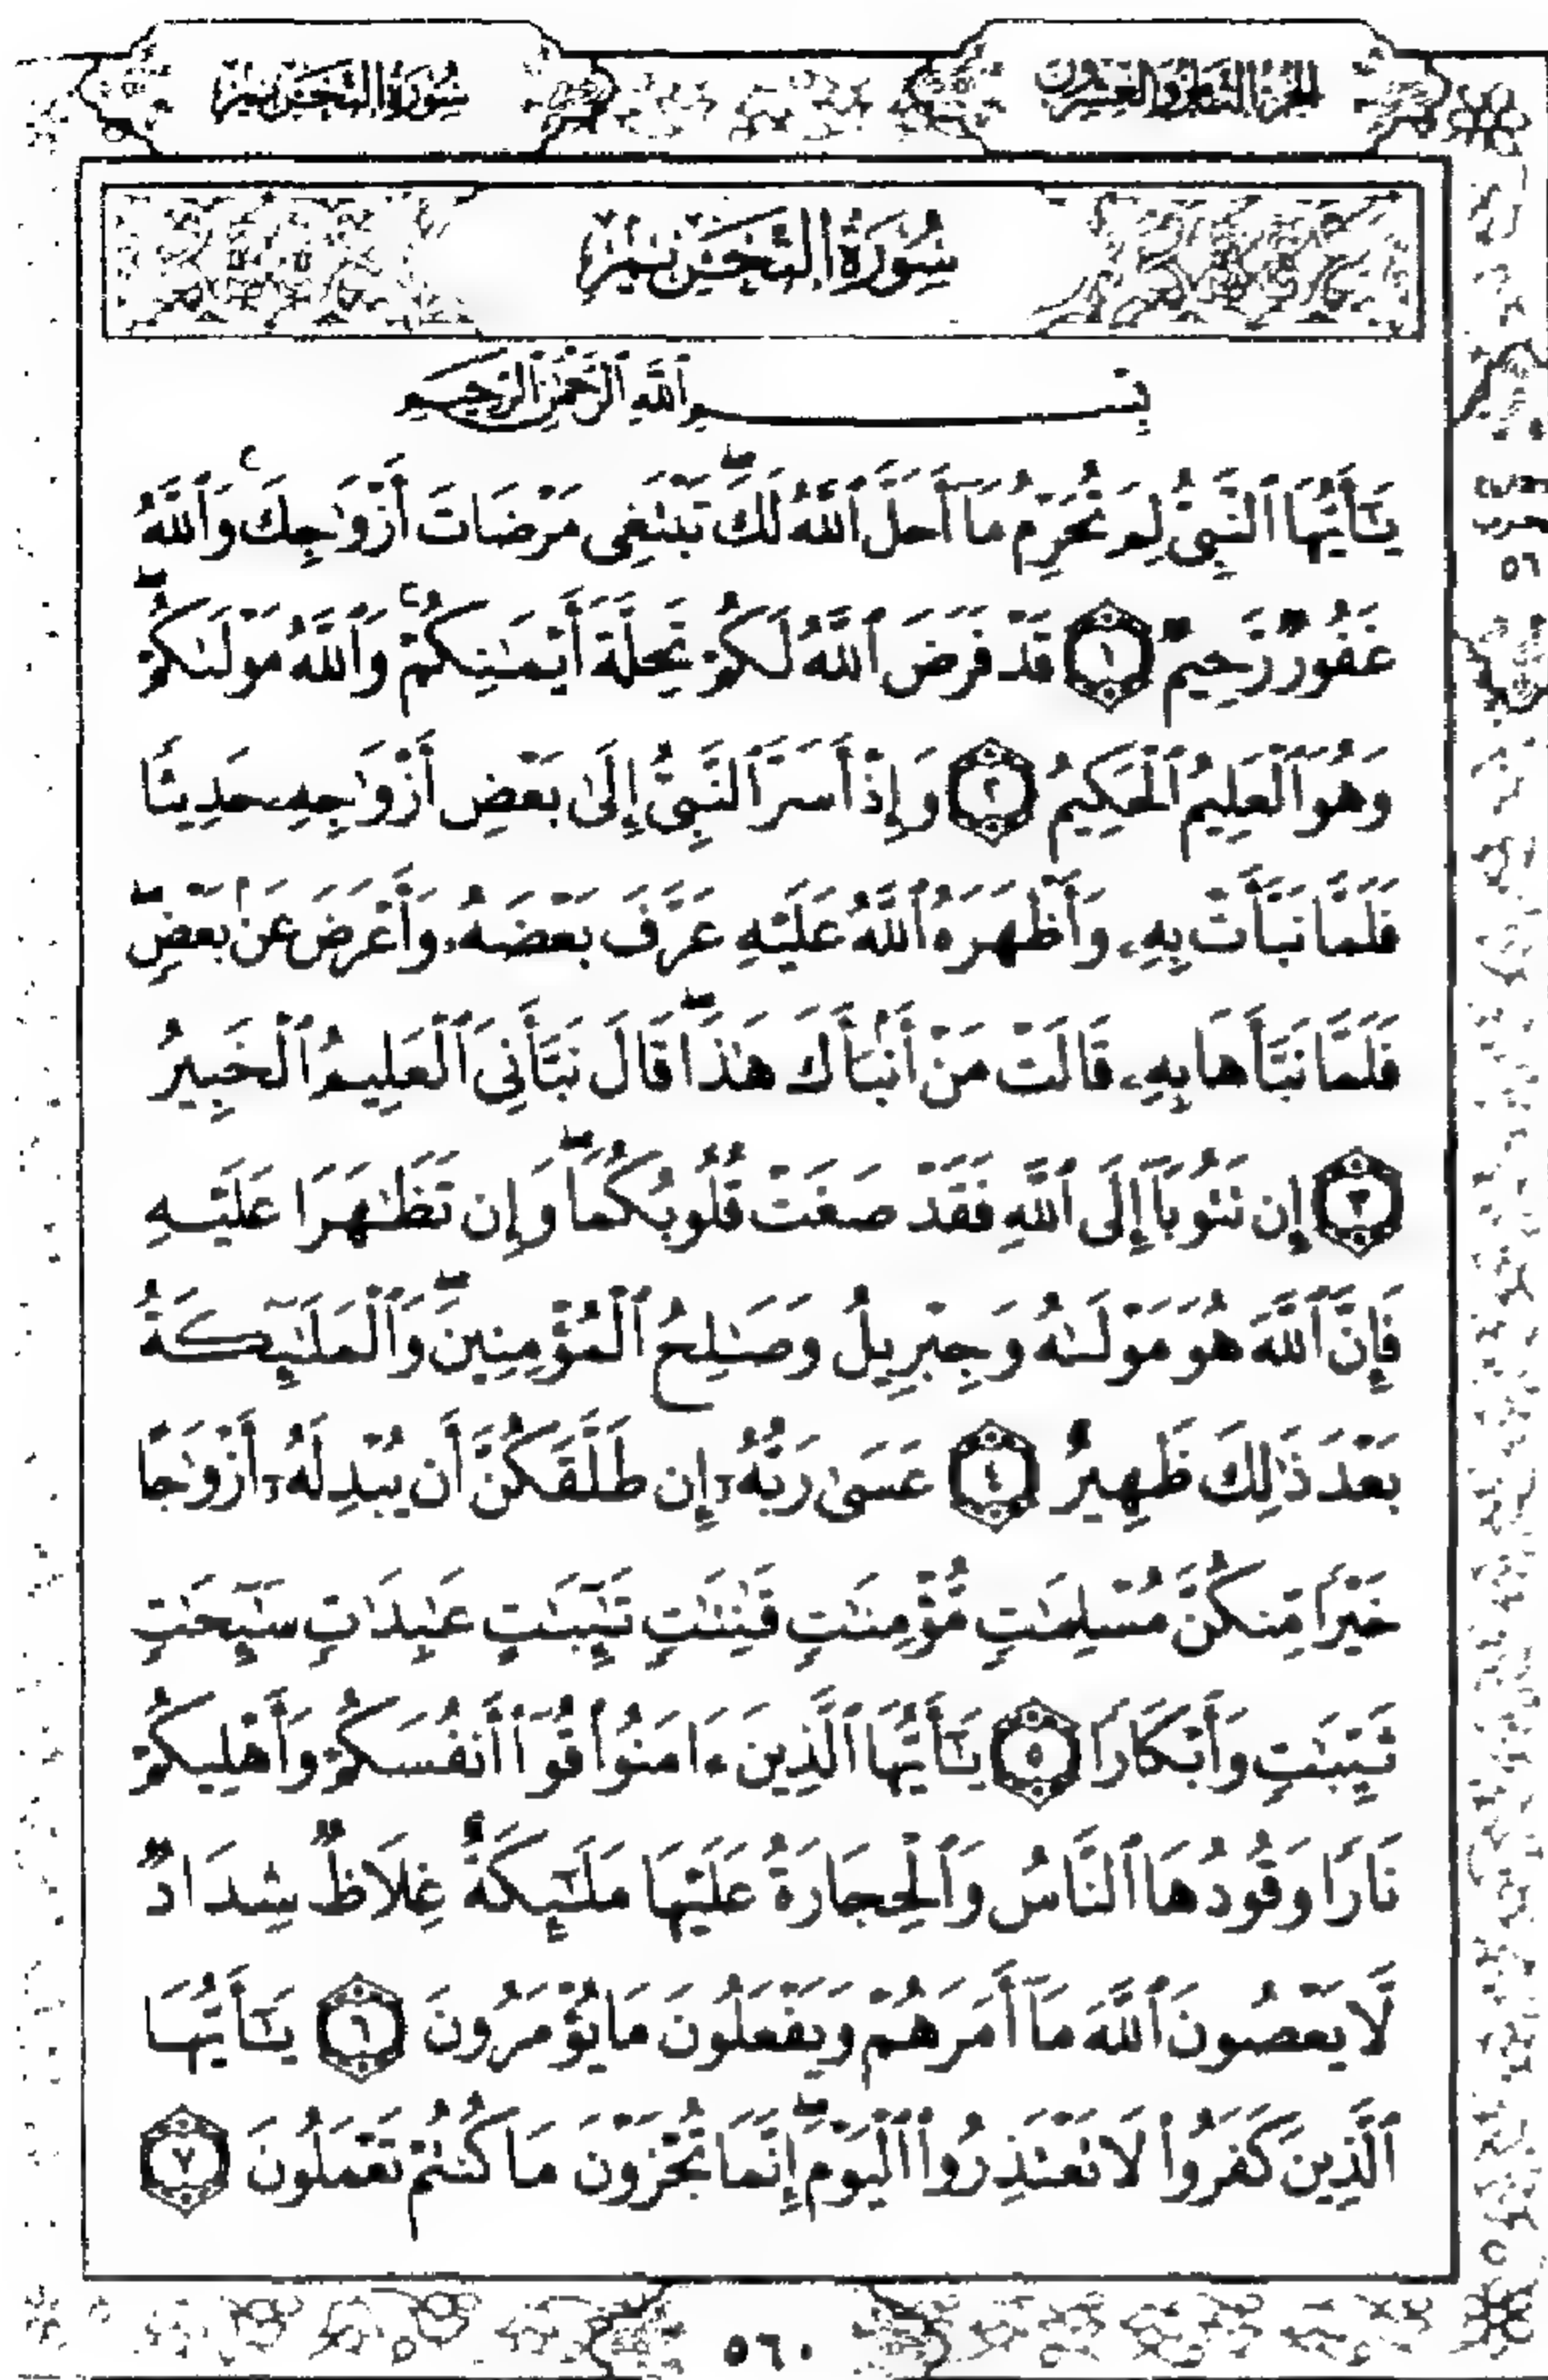 الجزء الثامن والعشرون
سورة التحريم
سُورَةُ التَّحْرِيمِ
بِسْمِ ٱللَّهِ ٱلرَّحْمَٰنِ ٱلرَّحِيمِ
يَٰٓأَيُّهَا ٱلنَّبِىُّ لِمَ تُحَرِّمُ مَآ أَحَلَّ ٱللَّهُ لَكَۖ تَبْتَغِى مَرْضَاتَ أَزْوَٰجِكَۚ وَٱللَّهُ
غَفُورٌ رَّحِيمٌ ١ قَدْ فَرَضَ ٱللَّهُ لَكُمْ تَحِلَّةَ أَيْمَٰنِكُمْۚ وَٱللَّهُ مَوْلَىٰكُمْۖ
وَهُوَ ٱلْعَلِيمُ ٱلْحَكِيمُ ٢ وَإِذْ أَسَرَّ ٱلنَّبِىُّ إِلَىٰ بَعْضِ أَزْوَٰجِهِۦ حَدِيثًا
فَلَمَّا نَبَّأَتْ بِهِۦ وَأَظْهَرَهُ ٱللَّهُ عَلَيْهِ عَرَّفَ بَعْضَهُۥ وَأَعْرَضَ عَنۢ بَعْضٍۖ
فَلَمَّا نَبَّأَهَا بِهِۦ قَالَتْ مَنْ أَنۢبَأَكَ هَٰذَاۖ قَالَ نَبَّأَنِىَ ٱلْعَلِيمُ ٱلْخَبِيرُ
٣ إِن تَتُوبَآ إِلَى ٱللَّهِ فَقَدْ صَغَتْ قُلُوبُكُمَاۖ وَإِن تَظَٰهَرَا عَلَيْهِ
فَإِنَّ ٱللَّهَ هُوَ مَوْلَىٰهُ وَجِبْرِيلُ وَصَٰلِحُ ٱلْمُؤْمِنِينَۖ وَٱلْمَلَٰٓئِكَةُ
بَعْدَ ذَٰلِكَ ظَهِيرٌ ٤ عَسَىٰ رَبُّهُۥٓ إِن طَلَّقَكُنَّ أَن يُبْدِلَهُۥٓ أَزْوَٰجًا
خَيْرًا مِّنكُنَّ مُسْلِمَٰتٍ مُّؤْمِنَٰتٍ قَٰنِتَٰتٍ تَٰٓئِبَٰتٍ عَٰبِدَٰتٍ سَٰٓئِحَٰتٍ
ثَيِّبَٰتٍ وَأَبْكَارًا ٥ يَٰٓأَيُّهَا ٱلَّذِينَ ءَامَنُوا۟ قُوٓا۟ أَنفُسَكُمْ وَأَهْلِيكُمْ
نَارًا وَقُودُهَا ٱلنَّاسُ وَٱلْحِجَارَةُ عَلَيْهَا مَلَٰٓئِكَةٌ غِلَاظٌ شِدَادٌ
لَّا يَعْصُونَ ٱللَّهَ مَآ أَمَرَهُمْ وَيَفْعَلُونَ مَا يُؤْمَرُونَ ٦ يَٰٓأَيُّهَا
ٱلَّذِينَ كَفَرُوا۟ لَا تَعْتَذِرُوا۟ ٱلْيَوْمَۖ إِنَّمَا تُجْزَوْنَ مَا كُنتُمْ تَعْمَلُونَ ٧
٥٦
٥٦٠